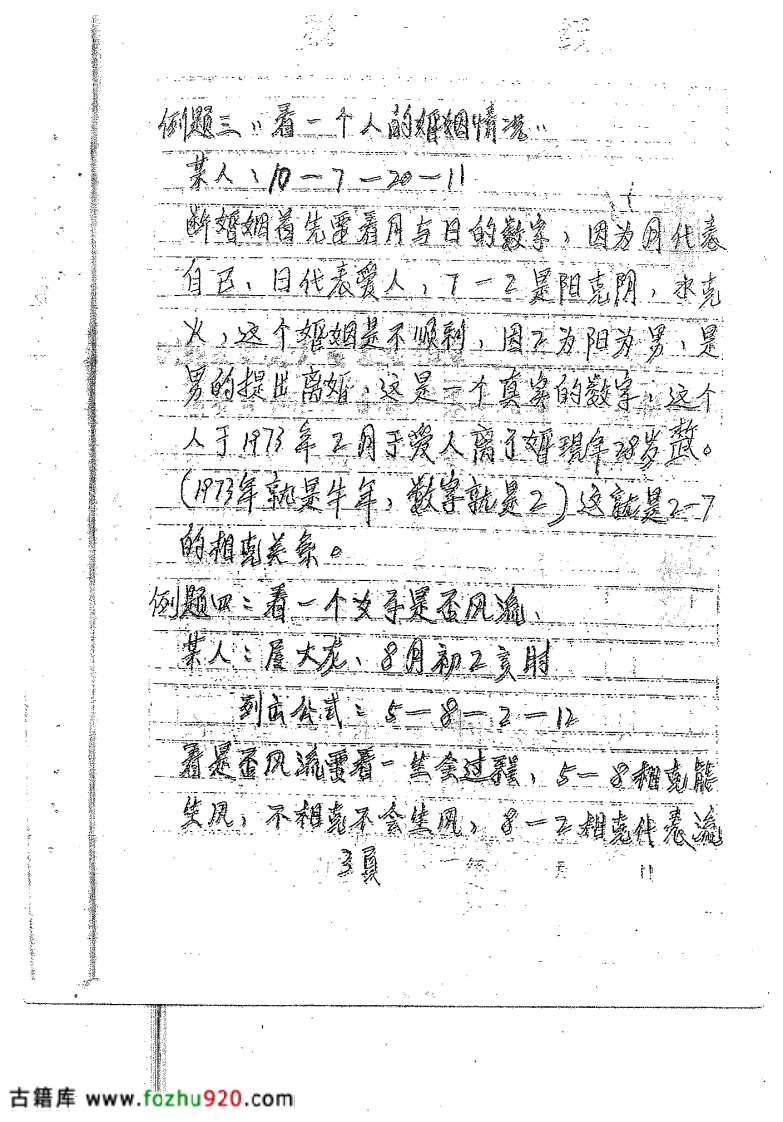 装 线
例题三："看一个人的婚姻情况"
某人：10—7—20—11
断婚姻首先要看月与日的数字，因为月代表
自己，日代表爱人，7—2是阳克阴，水克
火，这个婚姻是不顺利，因2为阳为男，是
男的提出离婚，这是一个真实的数字，这个
人于1973年2月于爱人离了婚现年28岁整。
(1973年就是牛年，数字就是2)这就是2—7
的相克关系。
例题四：看一个女子是否风流、
某人：属大龙、8月初2亥时
列出公式：5—8—2—12
看是否风流要看一生会过程，5—8相克能
生风，不相克不会生风，8—2相克代表流
3頁 年 月 11
古籍库 www.fozhu920.com